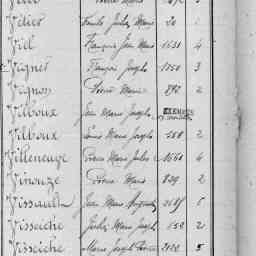 Vétier Emile Jules Marie 20 1
Viel François Jean Marie 1631 4
Vignet François Joseph 1050 3
Vignon Pierre Marie 892 2
Vilboux Jean Marie Joseph EXEMPTÉ
Vilboux Louis Marie Joseph 558 2
Villeneuve Pierre Marie Jules 1661 4
Vinouze Pierre Marie 829 2
Vissault Jean Marie Auguste 5
Visseiche Jules Marie Joseph 2
Visseiche Marie Joseph Pierre 2022 5